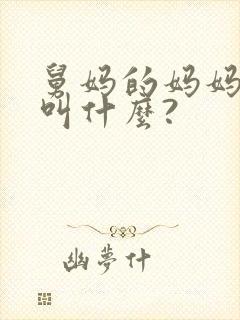 舅妈的妈妈
叫什麽?
幽夢什